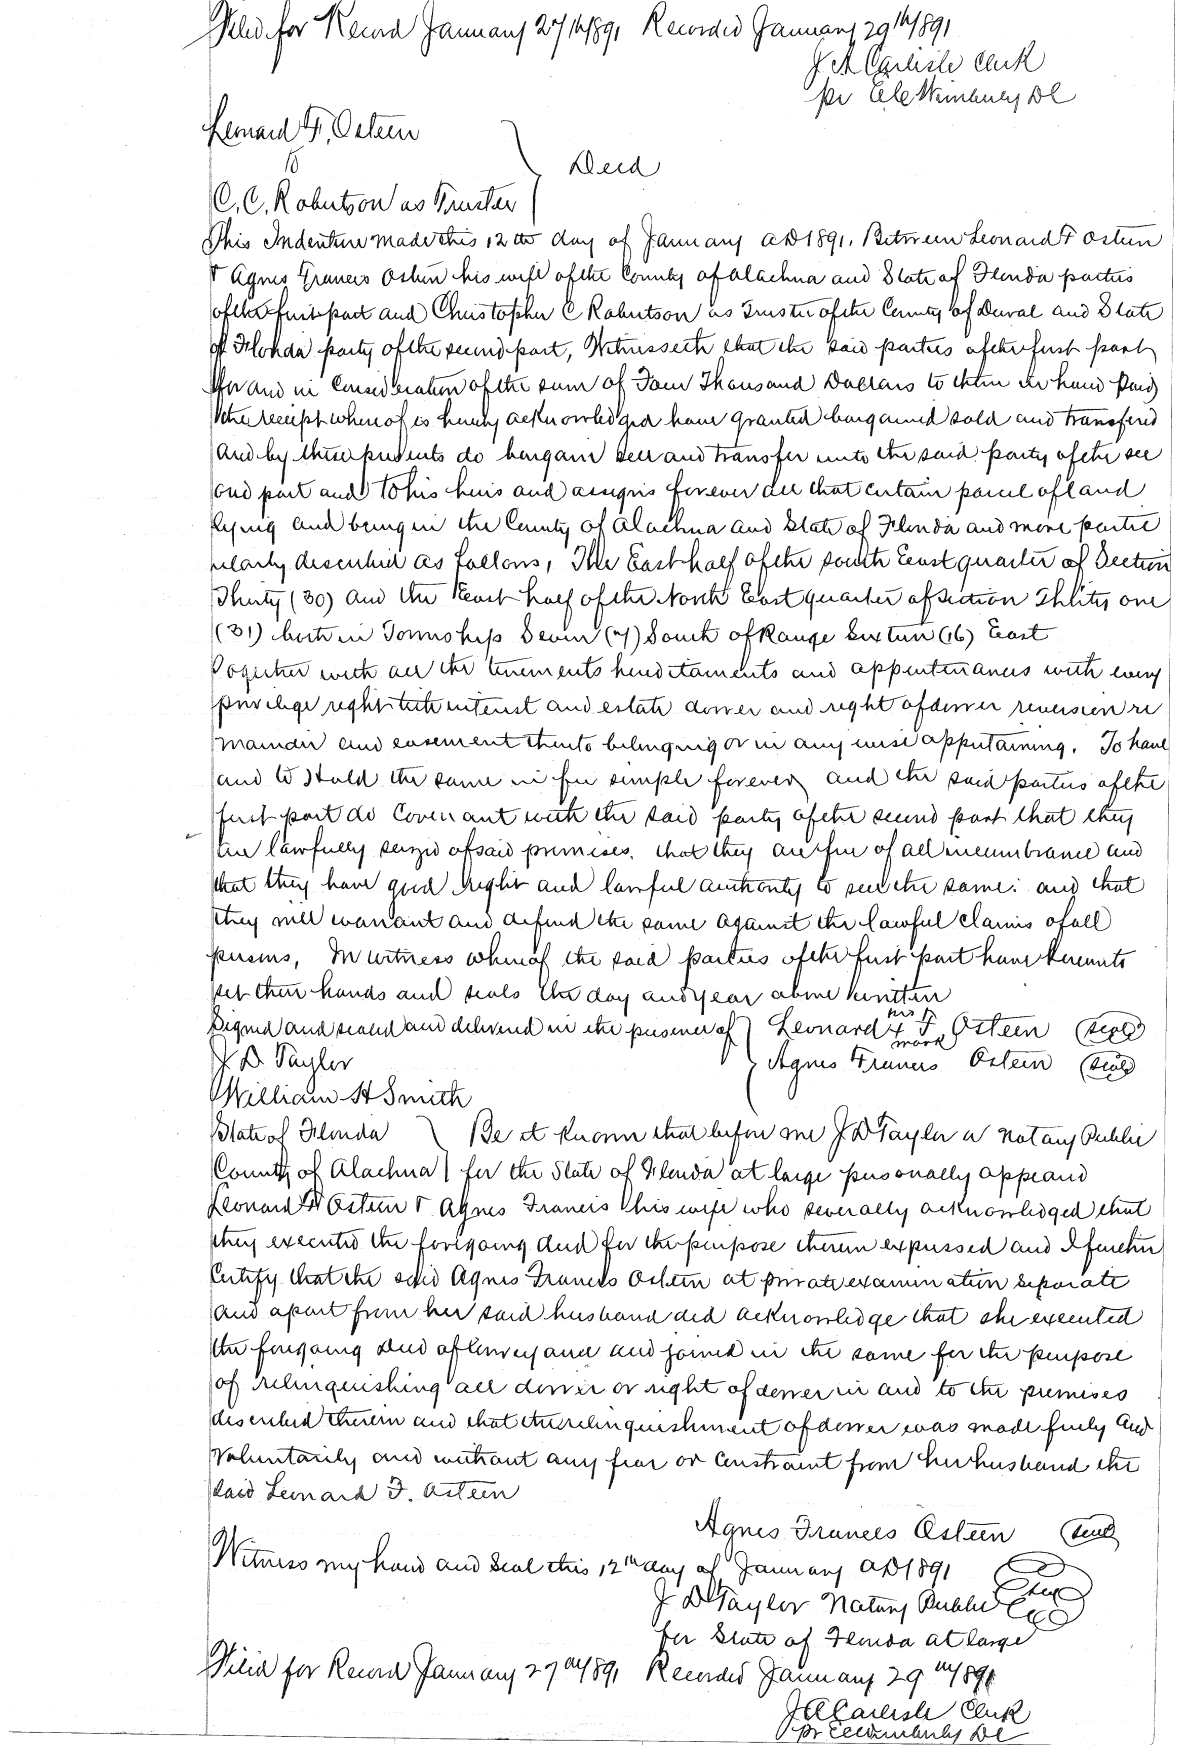 Filed for Record January 27th 1891 Recorded January 29th 1891
J A Carlisle Clerk
pr DC
Leonard F. Osteen
to
Deed
C. C. Robertson as Trustee
This Indenture made this 12th day of January AD 1891. Between Leonard F Osteen
& Agnes Francis Osteen his wife of the County of Alachua and State of Florida parties
of the first part and Christopher C Robertson as Trustee of the County of Duval and State
of Florida party of the second part, Witnesseth that the said parties of the first part
for and in Consideration of the sum of Four Thousand Dollars to them in hand paid
the receipt whereof is hereby acknowledged have granted bargained sold and transfered
and by these presents do bargain sell and transfer unto the said party of the sec
ond part and to his heirs and assigns forever all that certain parcel of land
lying and being in the County of Alachua and State of Florida and more partic
ularly described as follows, The East half of the south East quarter of Section
Thirty (30) and the East half of the North East quarter of Section Thirty one
(31) both in Township Seven (7) South of Range Sixteen (16) East
Together with all the tenements hereditaments and appurtenances with every
privilege right title interest and estate dower and right of dower reversion re
mainder and easement thereto belonging or in any wise appertaining. To have
and to Hold the same in fee simple forever and the said parties of the
first part do Covenant with the said party of the second part that they
are lawfully seized of said premises. that they are free of all incumbrance and
that they have good right and lawful authority to sell the same: and that
they will warrant and defend the same against the lawful claims of all
persons, In witness whereof the said parties of the first part have hereunto
set their hands and seals the day and year above written
Signed and sealed and delivered in the presence of Leonard his x mark F. Osteen (seal)
J D Taylor Agnes Francis Osteen (seal)
William H Smith
State of Florida Be it known that before me J D Taylor a Notary Public
County of Alachua for the State of Florida at large personally appeared
Leonard F Osteen & Agnes Francis his wife who severally acknowledged that
they executed the foregoing deed for the purpose therein expressed and I further
Certify that the said Agnes Frances Osteen at private examination separate
and apart from her said husband did acknowledge that she executed
the foregoing Deed of Conveyance and joined in the same for the purpose
of relinquishing all dower or right of dower in and to the premises
described therein and that the relinquishment of dower was made freely and
voluntarily and without any fear or constraint from her husband the
said Leonard F. Osteen
Agnes Frances Osteen (seal)
Witness my hand and Seal this 12th day of January AD 1891
J D Taylor Notary Public (seal)
for State of Florida at large
Filed for Record January 27th 1891 Recorded January 29th 1891
J A Carlisle Clerk
pr DC